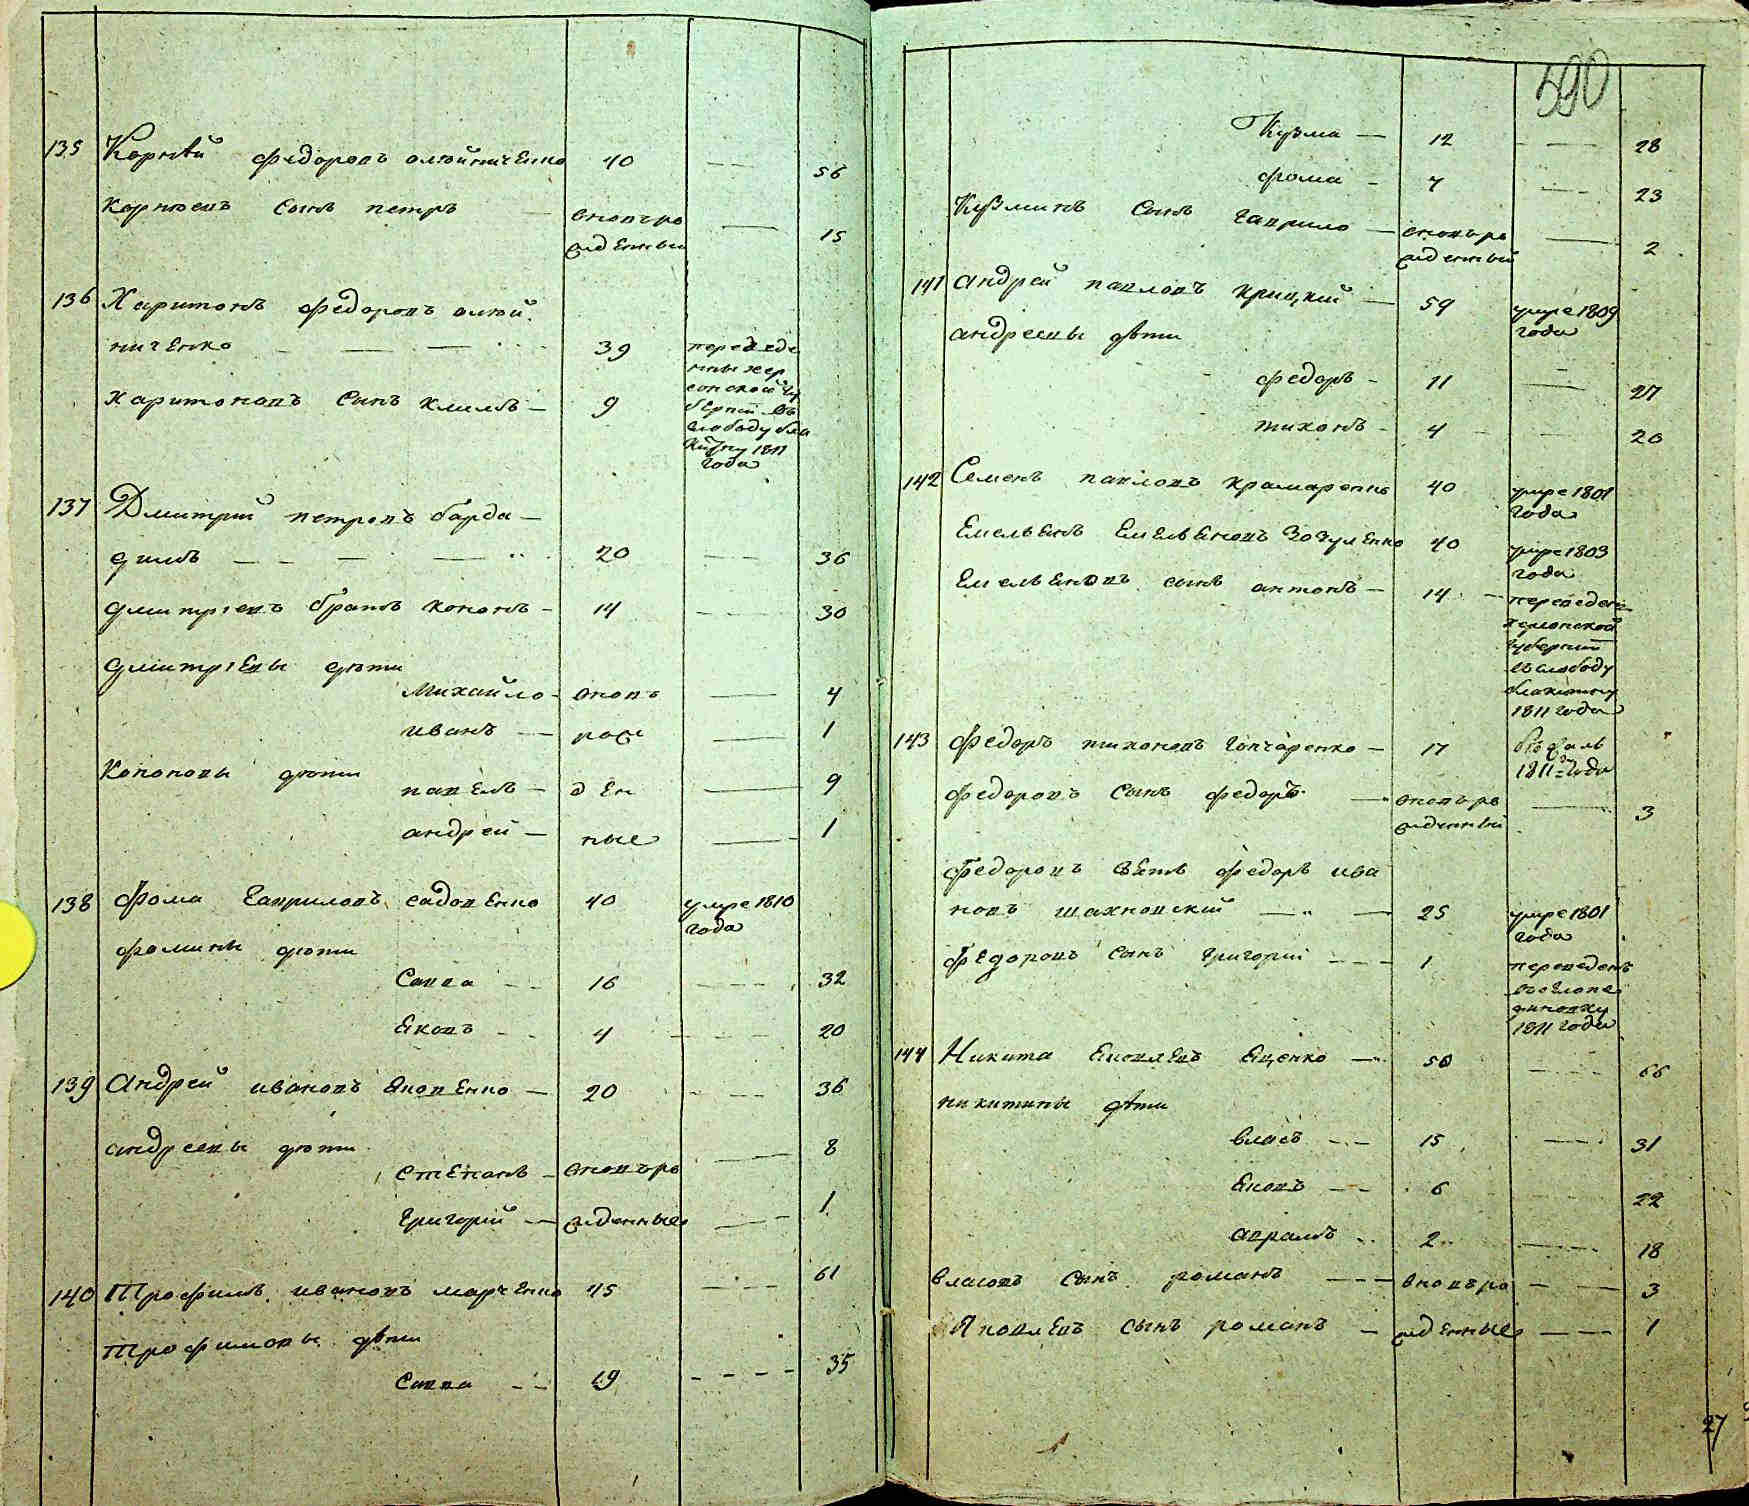 135 Корнѣй Федоровъ олюйниченко 40 — — 56
Корнѣевъ сынъ петръ — вновьро — 15
жденный
136 Харитонъ Федоровъ олюй
ниченко — — — 39 переведе
нны хер
сонской гу
Харитоновъ сынъ климъ — 9 берніи въ
слободу бла
китну 1811
года
137 Дмитрий петровъ барда —
димъ — — — 20 — — 36
дмитріевъ братъ кононъ — 14 — — 30
дмитріевы дѣти
михайло — вновь — 4
иванъ — рож — 1
Кононовы дѣти
павелъ — ден — 9
андрей — ные — 1
138 Фома Гавриловъ садовенко 40 умре 1810
года
фомины дѣти
Савва — — 16 — — — 32
Яковъ — 4 — — — 20
139 Андрей ивановъ Яковенко — 20 — — — 36
андреевы дѣти
степанъ — вновьро — 8
Григорій — жденные — 1
140 Трофимъ ивановъ марченко 45 — — — 61
Трофимовы дѣти
Савва — — 19 — — — — 35
590
Кузма — 12 — — 28
фома — 7 — — 23
Кузминъ сынъ гаврило — вновьро — 2
жденный
141 андрей павловъ крицкій — 59 умре 1809
года
андреевы дѣти
федоръ — 11 — 27
тихонъ — 4 — — 20
142 Семенъ павловъ крамаренко 40 умре 1801
года
Емельянъ Емельяновъ Зозуленко 40 умре 1803
года
Емельяновъ сынъ антонъ — 14 — переведенъ
херсонской
губерніи
въ слободу
блакитну
1811 года
143 Федоръ тихоновъ гончаренко — 17 бѣжалъ
1811 = года
федоровъ сынъ федоръ — вновьро — 3
жденный
федоровъ зять федоръ ива
новъ шахновскій — — 25 умре 1801
года
федоровъ сынъ григорій — — — 1 переведенъ
1811 года
144 Никита Яковлевъ Яценко — 50 — — 66
никитины дѣти
власъ — — 15 — 31
Яковъ — — 6 — 22
аврамъ 2 — — 18
власовъ сынъ романъ — — — вновьро — — 3
Яковлевъ сынъ романъ — жденные — — 1
27